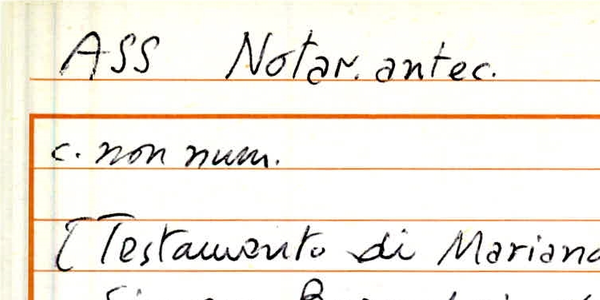 ASS Notar. antec.
c. non num.
[Testamento di Mariano